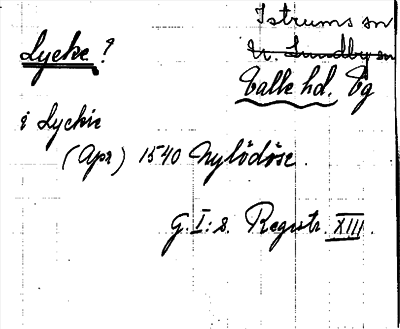 Istrums sn
Lycke ?
N. Lundby sn
Valle hd. Vg
i Lyckie
(Apr) 1540 Nylödöse.
G. I:s. Registr. XIII.